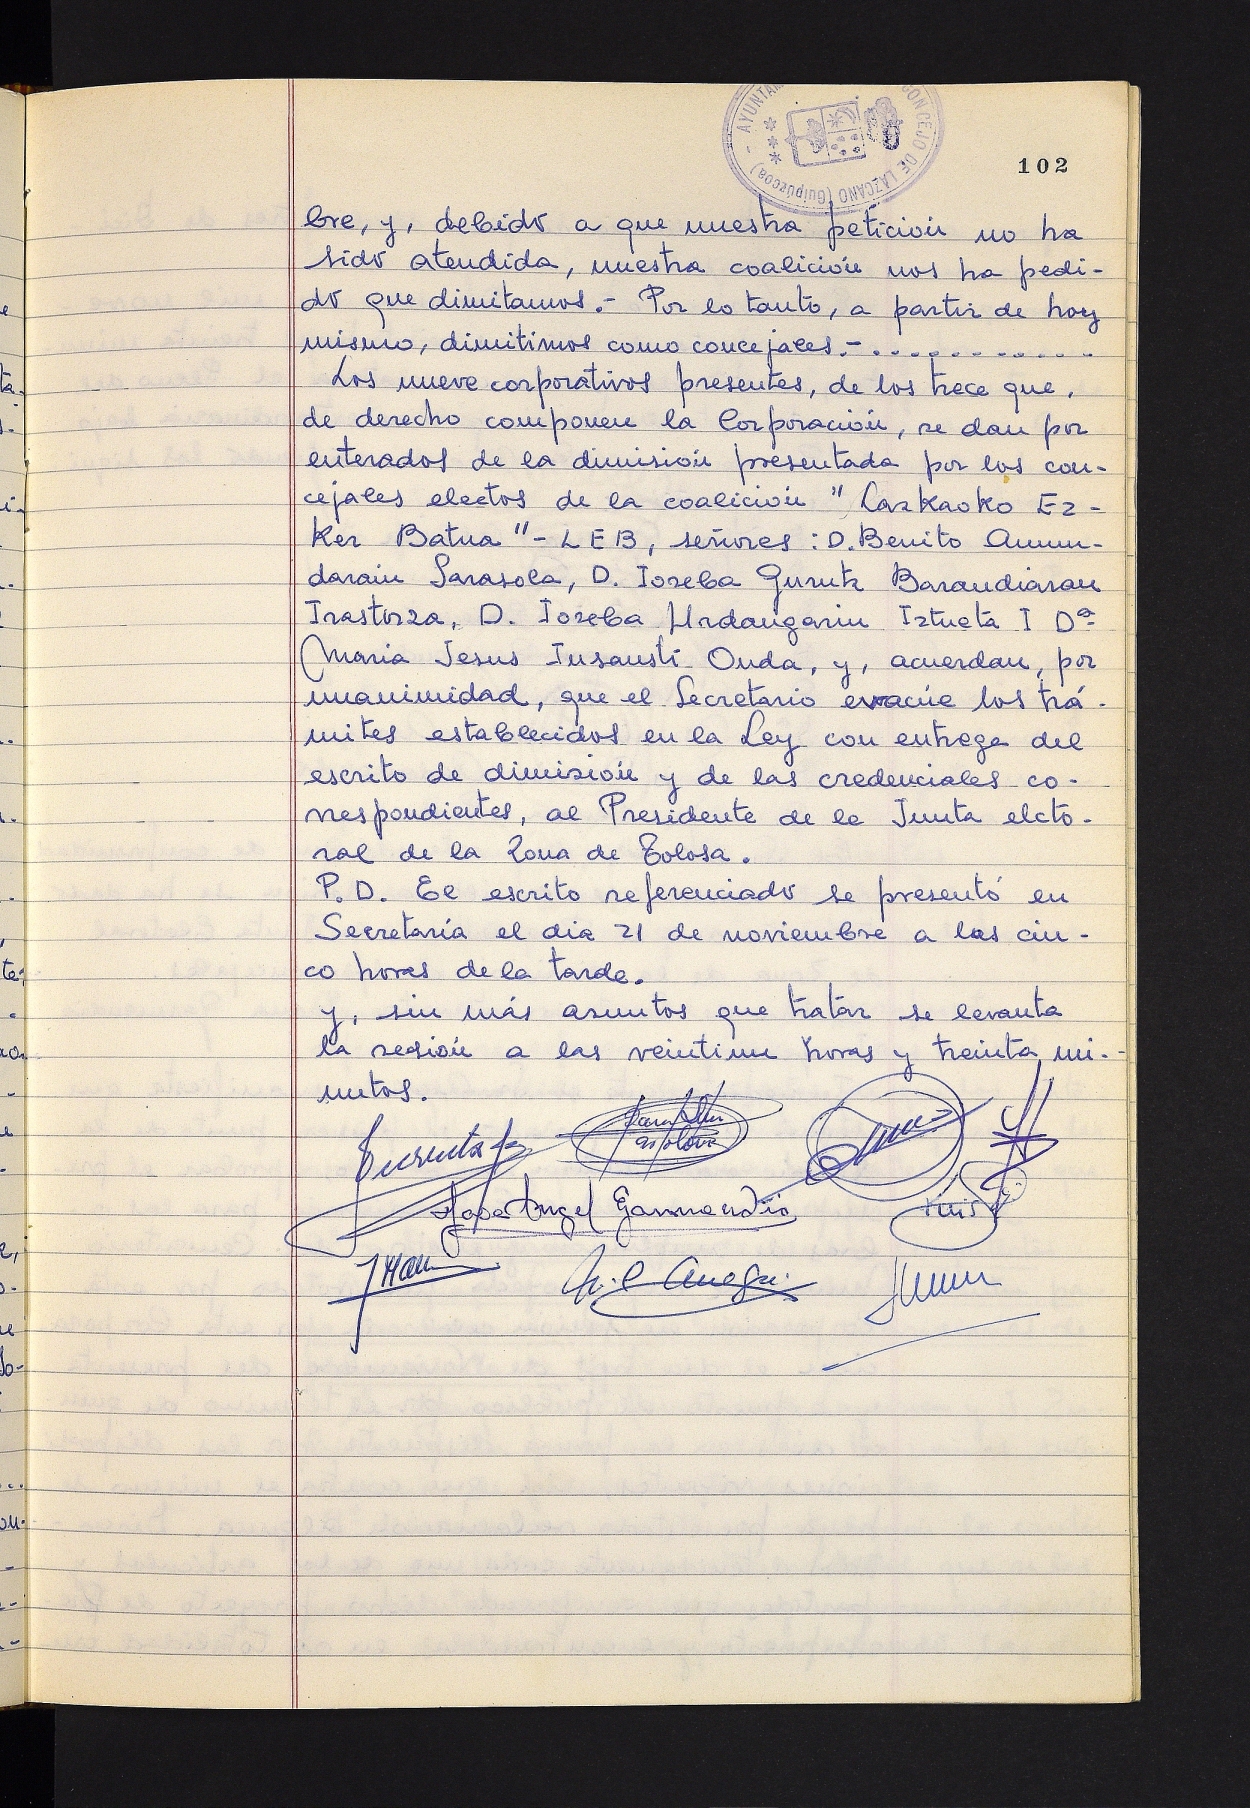 102
bre, y, debido a que nuestra petición no ha
sido atendida, nuestra coalición nos ha pedi-
do que dimitamos.- Por lo tanto, a partir de hoy
mismo, dimitimos como concejales.- . . . . . . . . . . . .
Los nueve corporativos presentes, de los trece que,
de derecho componen la Corporación, se dan por
enterados de la dimisión presentada por los con-
cejales electos de la coalición "Lazkaoko Ez-
ker Batua"- LEB, señores: D. Benito Amun-
darain Sarasola, D. Ioseba Gurutz Barandiaran
Irastorza, D. Ioseba Urdangarin Iztueta I Dª
Maria Jesus Insausti Onda, y, acuerdan, por
unanimidad, que el Secretario evacúe los trá-
mites establecidos en la Ley con entrega del
escrito de dimisión y de las credenciales co-
rrespondientes, al Presidente de la Junta elcto-
ral de la Zona de Tolosa.
P.D. El escrito referenciado se presentó en
Secretaría el dia 21 de noviembre a las cin-
co horas de la tarde.
y, sin más asuntos que tratar se levanta
la sesión a las veintiun horas y treinta mi-
nutos.
Jose Angel Garmendia
Luis